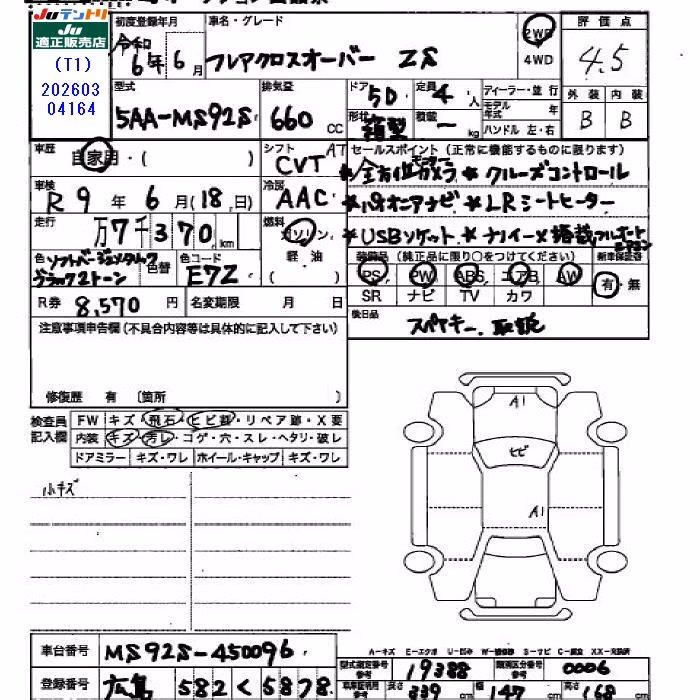 Juテントリ
Ju
適正販売店
(T1)
202603
04164
初度登録年月
令和
6年6月
車名・グレード
フレアクロスオーバー XS
2WD
4WD
評価点
4.5
外装 内装
B B
型式
5AA-MS92S
排気量
660 CC
ドア 5D 定員 4 人
形状 箱型 積載 ー kg
ディーラー・並行
モデル年式 年
ハンドル 左・右
車歴
自家用・( )
シフト AT
CVT
セールスポイント (正常に機能するものに限ります)
*全方位モニターカメラ *クルーズコントロール
車検
R 9 年 6 月(18,日)
冷房
AAC
*パイオニアナビ *LRシートヒーター
走行
万7千370,km
燃料
ガソリン
軽油
*USBソケット *ナノイーX搭載フルオートエアコン
色 ソフトベージュメタリック
ブラック2トーン
色替
色コード
E7Z
装備品 (純正品に限り○をつけてください) 新車保証書
PS PW ABS エアB AW
SR ナビ TV カワ
有・無
R券 8,570 円 名変期限 月 日
後日品
スペアキー、取説
注意事項申告欄(不具合内容等は具体的に記入して下さい)
修復歴 有 〔箇所 〕
検査員
記入欄
FW キズ・飛石・ヒビ割・リペア跡・X要
内装 キズ・汚レ・コゲ・穴・スレ・ヘタリ・破レ
ドアミラー キズ・ワレ ホイール・キャップ キズ・ワレ
小キズ
A1
ヒビ
A1
車台番号 MS92S-450096
登録番号 広島 582 く 5878
A-キズ E-エクボ U-凹み W-補修跡 S-サビ C-腐食 XX-交換済
型式指定番号 19388 類別区分番号 0006
車体証明用参考 長さ 339 cm 幅 147 cm 高さ 168 cm